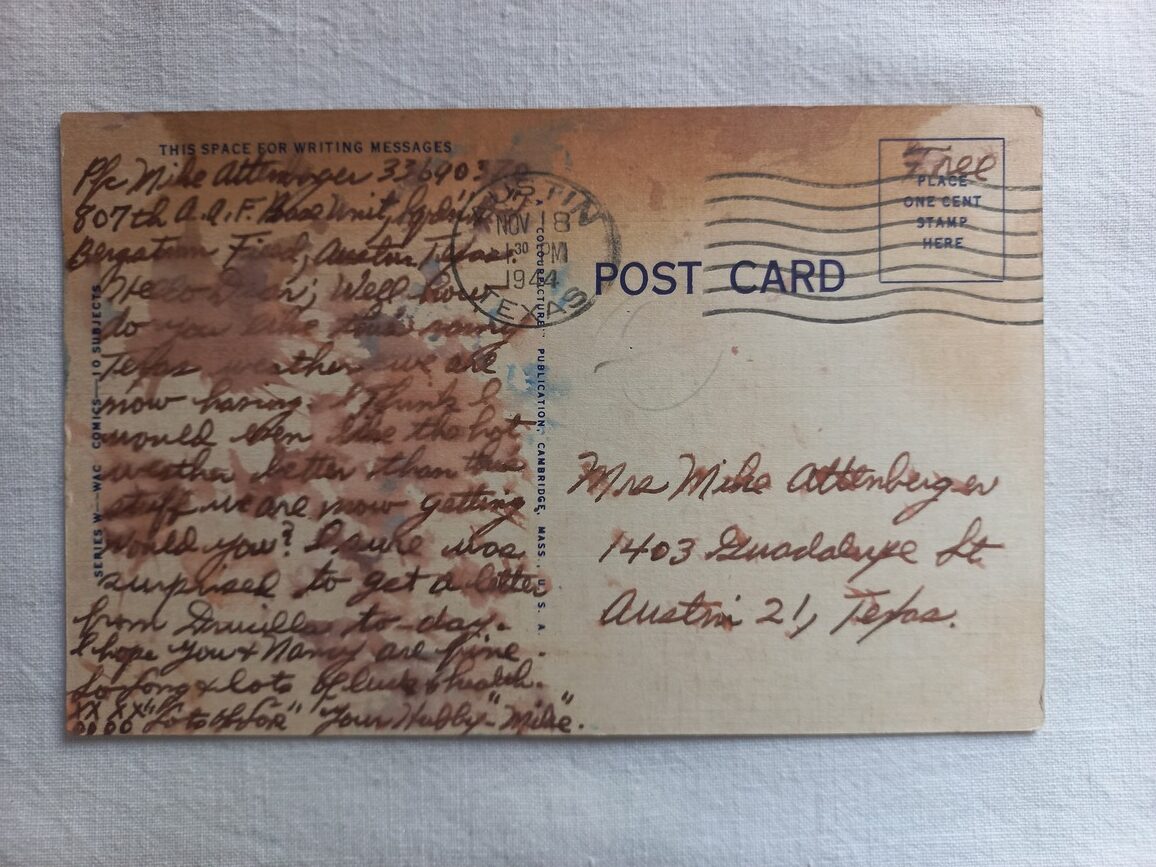 THIS SPACE FOR WRITING MESSAGES
Pfc Mike Attenberger 33690370
807th A.A.F. Base Unit, Sqdn
Bergstrom Field, Austin, Texas.
Hello Dear; Well how
do you like this rainy
Texas weather we are
now having. I think I
would even like the hot
weather better than this
stuff we are now getting
would you? I sure was
surprised to get a letter
from Drucilla to-day.
I hope you & Nancy are fine.
So long & lots of luck & health.
XXXX "Lots of Love" "Your Hubby" "Mike".
OOOO
SERIES W—WAC COMICS—10 SUBJECTS
A "COLOURPICTURE" PUBLICATION, CAMBRIDGE, MASS., U.S.A.
NOV 18
1 30 PM
1944
TEXAS
POST CARD
Free
PLACE
ONE CENT
STAMP
HERE
Mrs Mike Attenberger
1403 Guadalupe St
Austin 21, Texas.